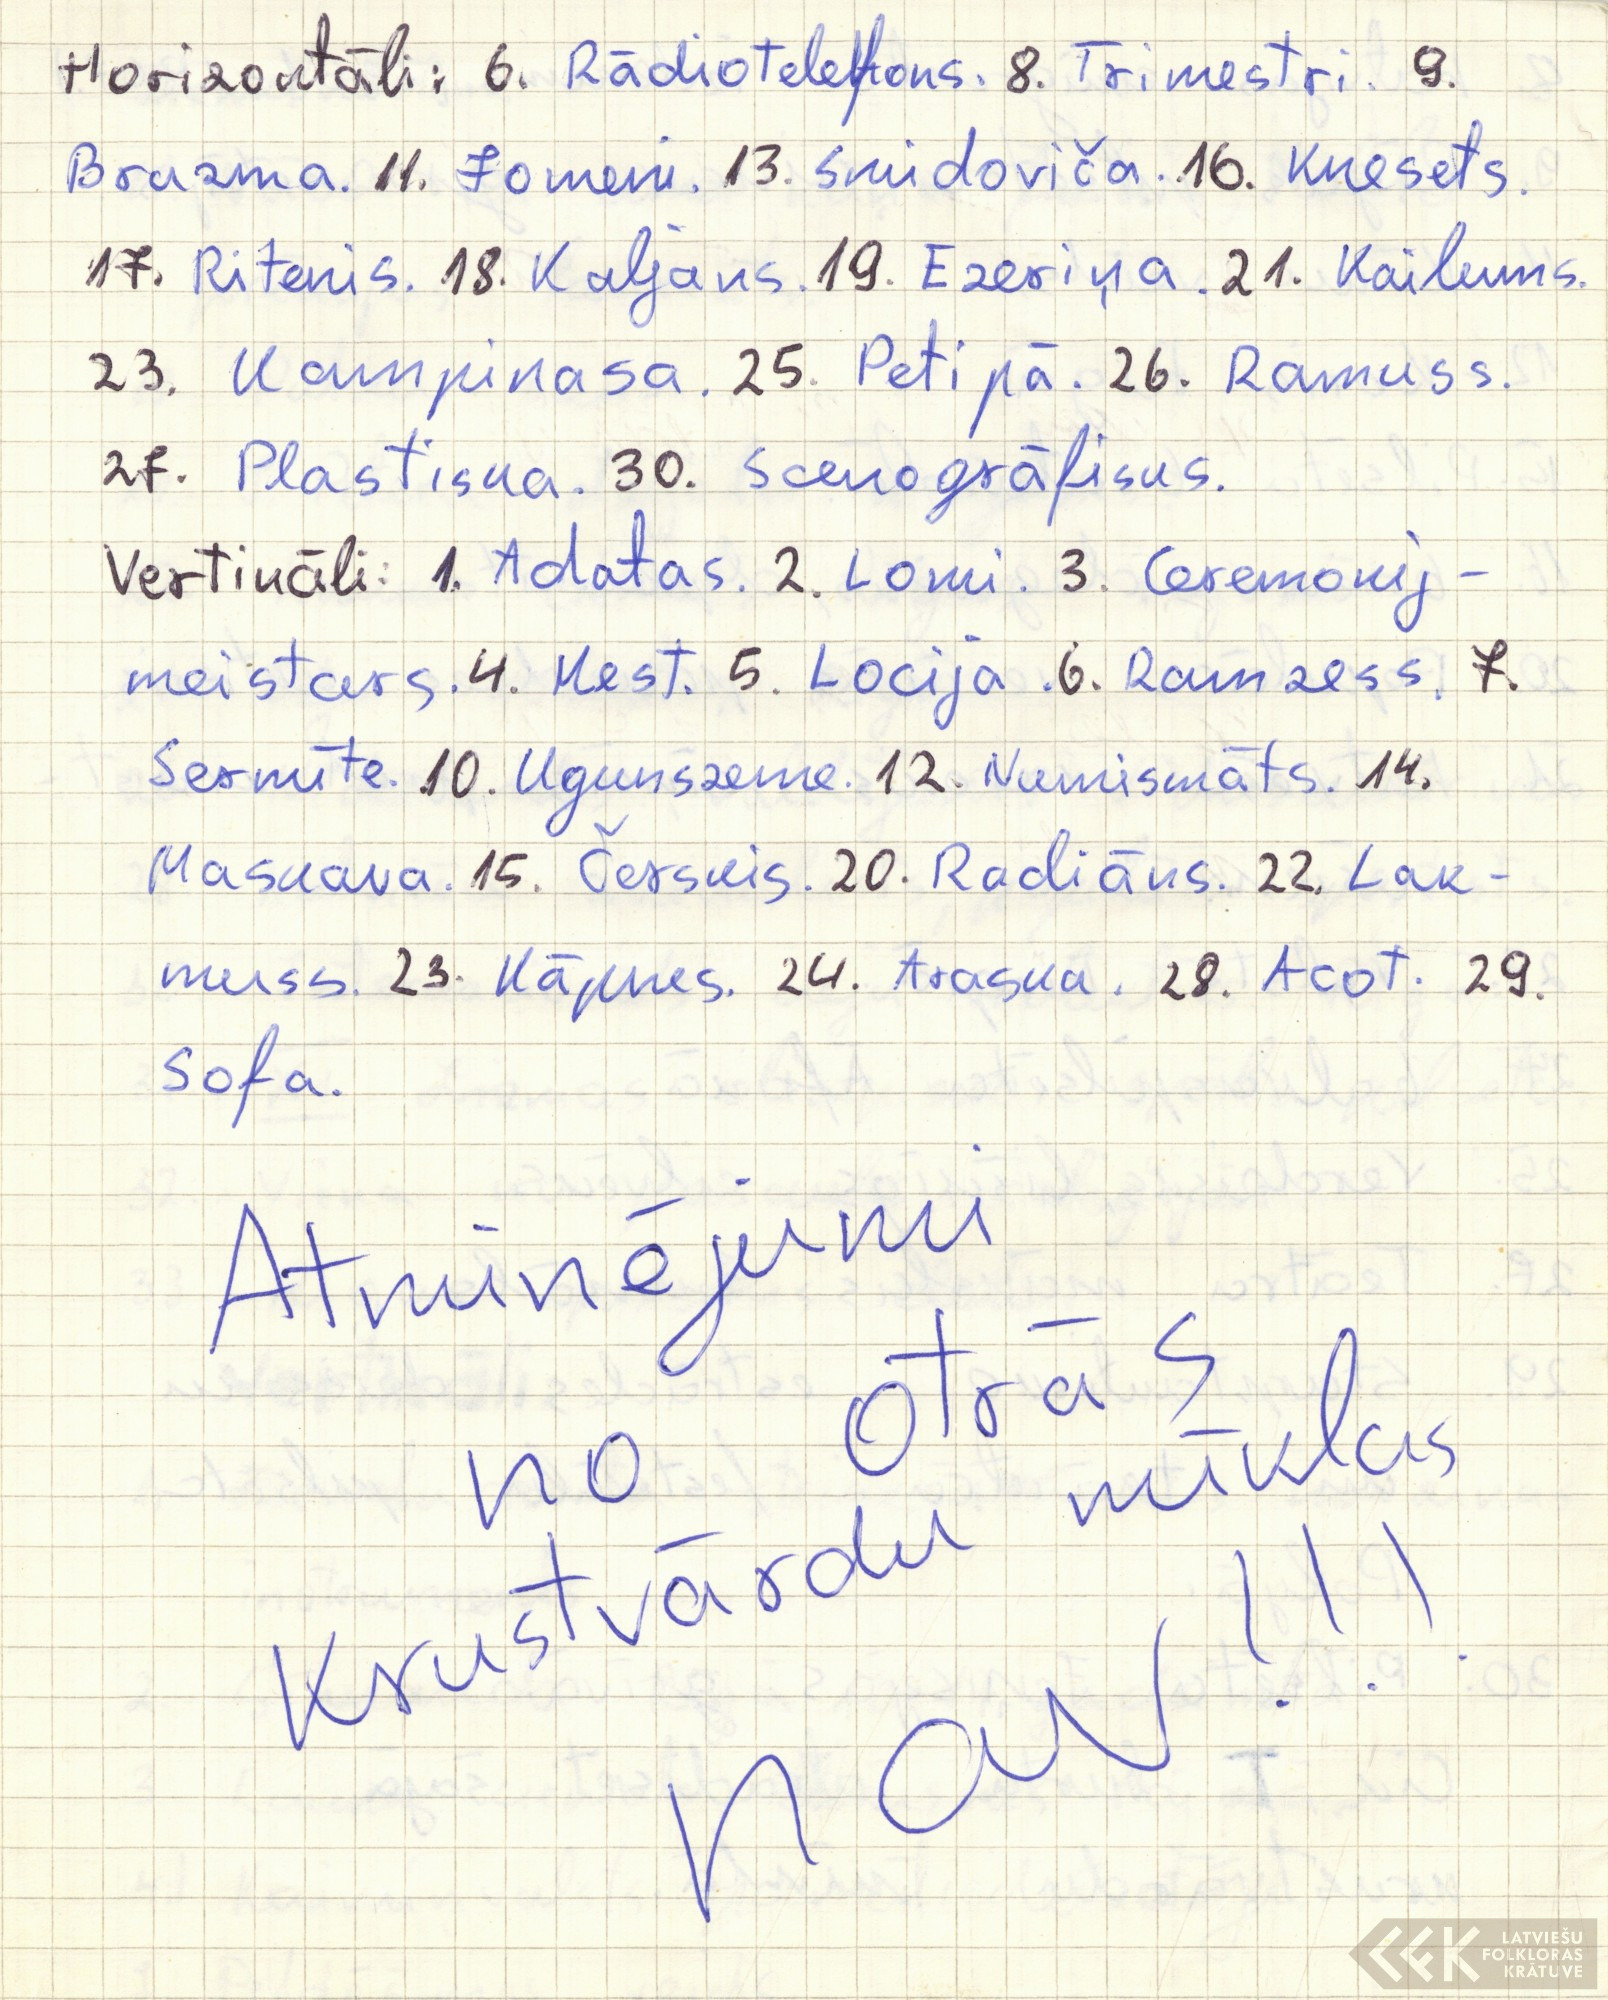 Horizontāli: 6. Rādiotelefons. 8. Trimestri. 9.
Brazma. 11. Fomeni. 13. Smidoviča. 16. Knesets.
17. Ritenis. 18. Kaljāns. 19. Ezeriņa. 21. Kailums.
23. Kampinasa. 25. Petipā. 26. Ramuss.
27. Plastiska. 30. Scenogrāfisks.
Vertikāli: 1. Adatas. 2. Lomi. 3. Ceremonij-
meistars. 4. Mest. 5. Locija. 6. Ramzess. 7.
Sermīte. 10. Ugunszeme. 12. Numismāts. 14.
Maskava. 15. Čerskis. 20. Radiāns. 22. Lak-
muss. 23. Kāpnes. 24. Araska. 28. Acot. 29.
Sofa.
Atminējumi
no otrās
krustvārdu mīklas
nav!!!
LATVIEŠU
FOLKLORAS
KRĀTUVE